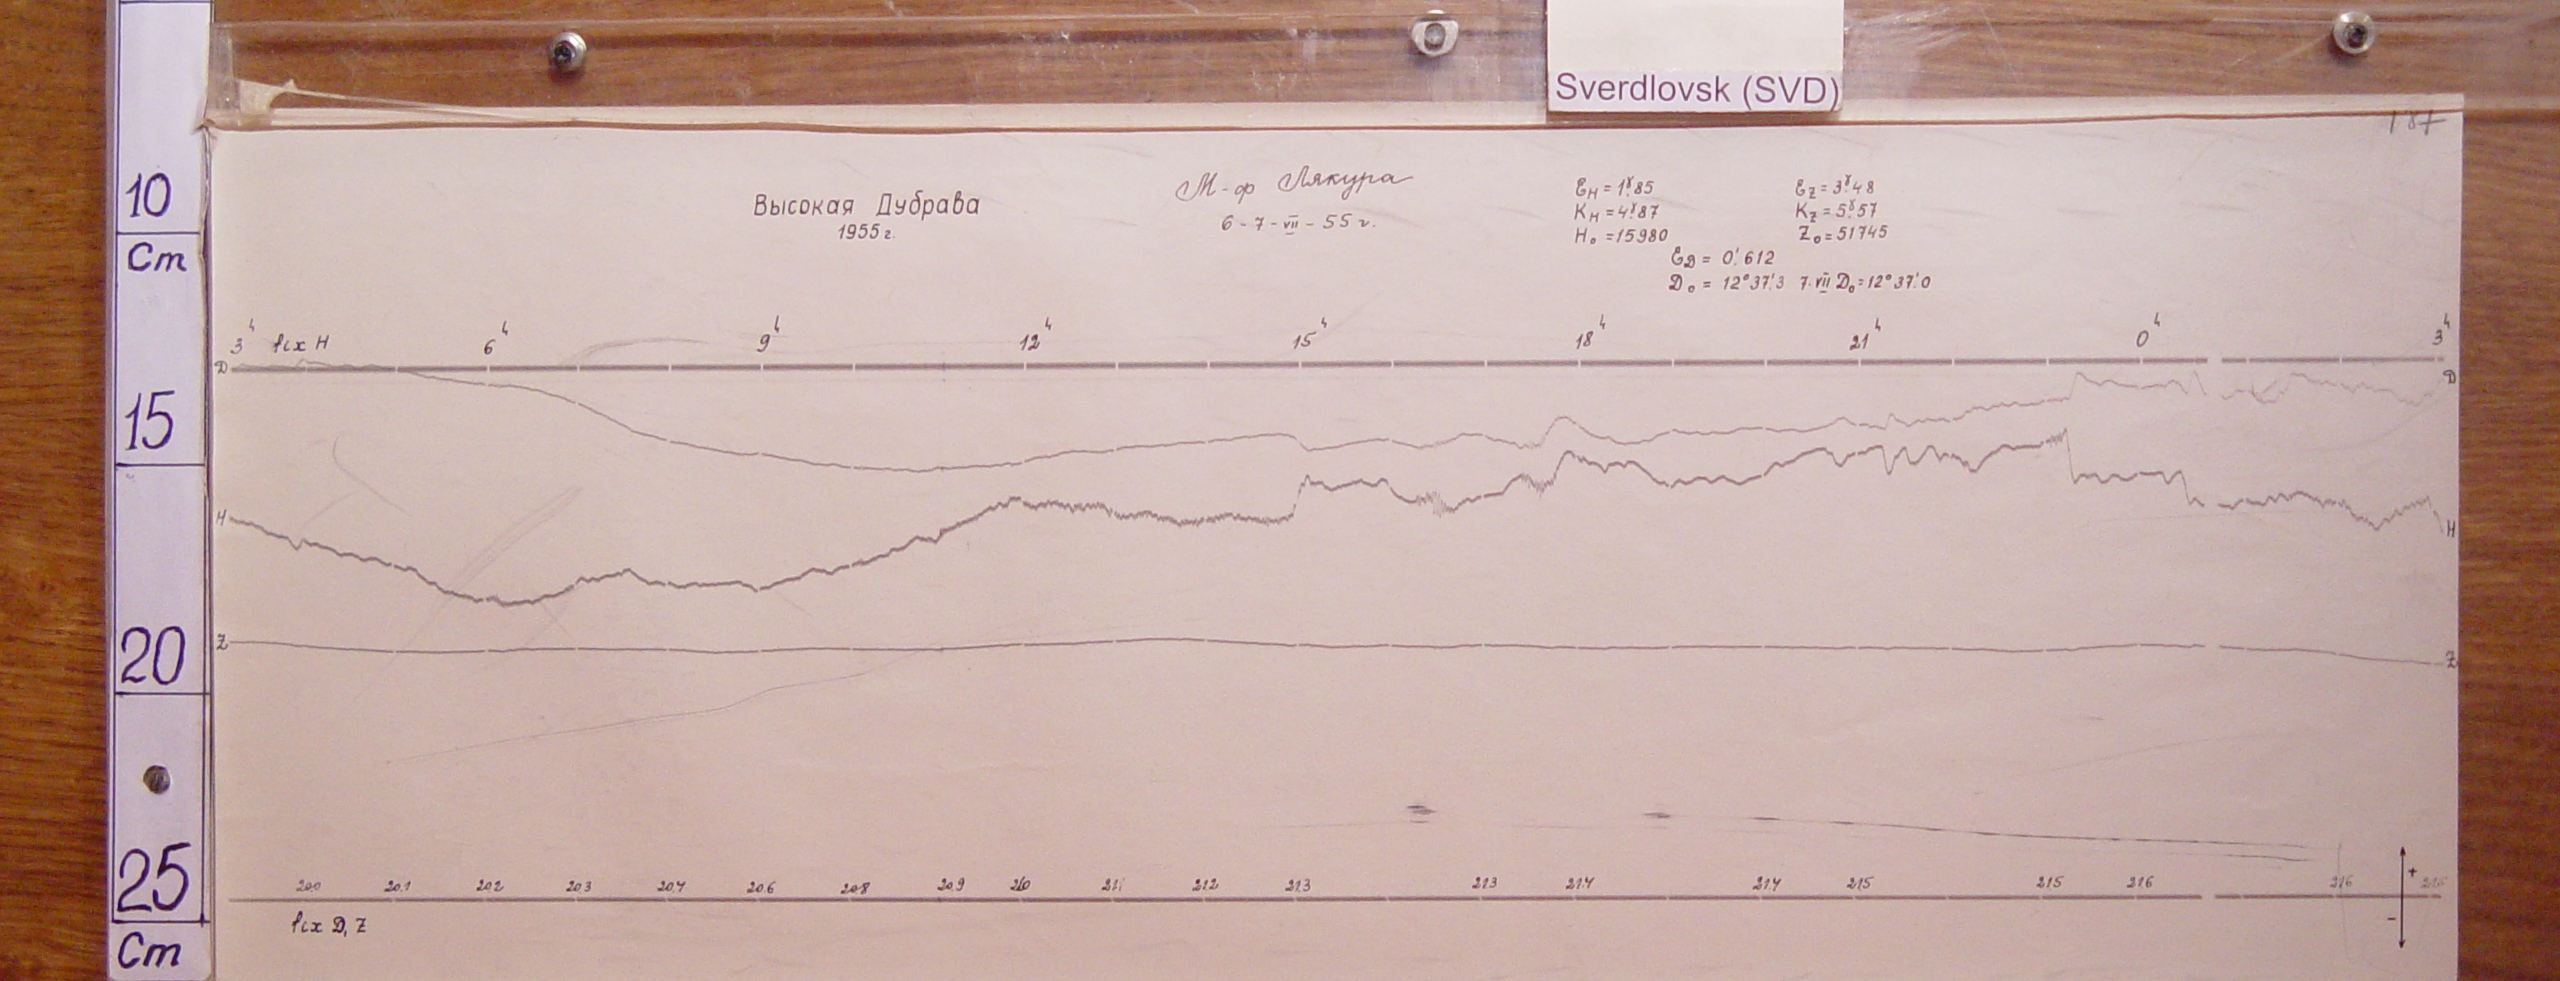 Sverdlovsk (SVD)
187
10
Cm
15
20
25
Cm
Высокая Дубрава
1955 г.
М-ф Лякура
6-7-VII-55 г.
ƐH = 1ˠ.85
KH = 4ˠ.87
H₀ = 15980
ƐZ = 3ˠ.48
KZ = 5ˠ.57
Z₀ = 51745
ƐD = 0'.612
D₀ = 12°37'.3 7.VII D₀ = 12°37'.0
3ʰ fix H 6ʰ 9ʰ 12ʰ 15ʰ 18ʰ 21ʰ 0ʰ 3ʰ
D D
H H
Z Z
20.0 20.1 20.2 20.3 20.4 20.6 20.8 20.9 21.0 21.1 21.2 21.3 21.3 21.4 21.4 21.5 21.5 21.6 21.6
+
-
fix D, Z